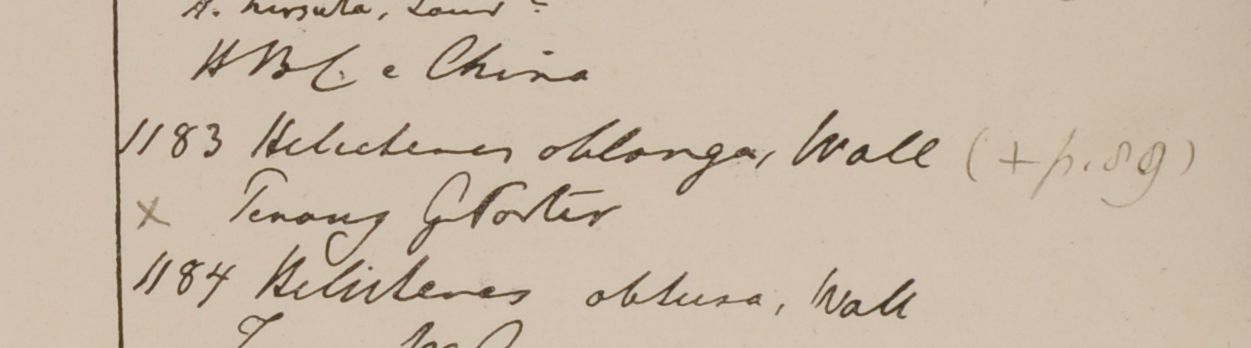 A. hirsuta, Lour.
HBC. e China
1183 Helicteres oblonga, Wall (+ p. 89)
x Penang G Porter
1184 Helicteres obtusa, Wall